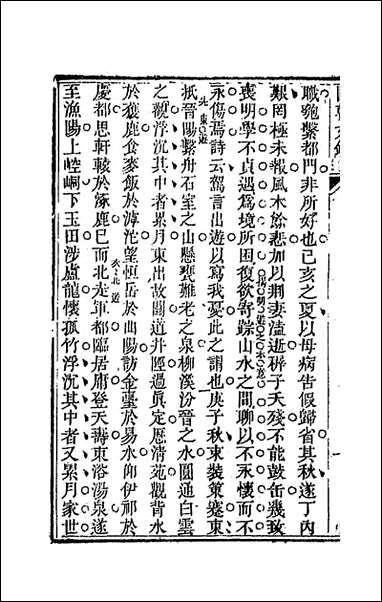 職匏繫都門非所好也己亥之夏以母病告假歸省其秋遂丁內
艱罔極未報風木餘悲加以荆妻溘逝姘子夭殘不能鼓缶幾致
喪明學不貞遇爲境所困復欲寄踪山水之間聊以不永懷而不
永傷焉詩云駕言出遊以寫我憂此之謂也庚子秋束裝策蹇東
北東遊
抵晉陽繫舟石室之山懸甕難老之泉柳溪汾晉之水圓通白雲
之觀浮沉其中者累月東出故關道井陘過眞定歷清苑觀背水
於獲鹿食麥飯於滹沱望恒岳於曲陽訪金臺於易水仰伊祁於
慶都思軒轅於涿鹿已而北走軍都臨居庸登天壽東浴湯泉遂
至漁陽上崆峒下玉田涉盧龍懷孤竹浮沉其中者又累月家世